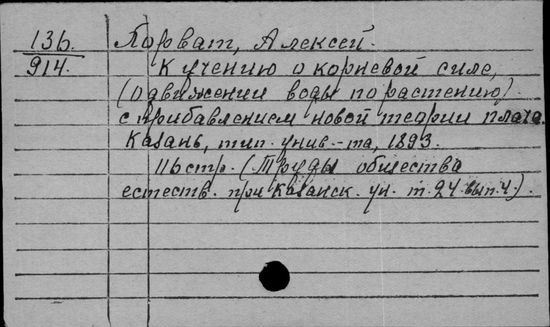 136.
914.
Хорват, Алексей.
К учению о корневой силе,
(о движении воды по растению)
с прибавлением новой теории плача.
Казань, тип. унив.-та, 1893.
116 стр. (Труды общества
естеств. при Казанск. ун. т. 24 вып. 4).